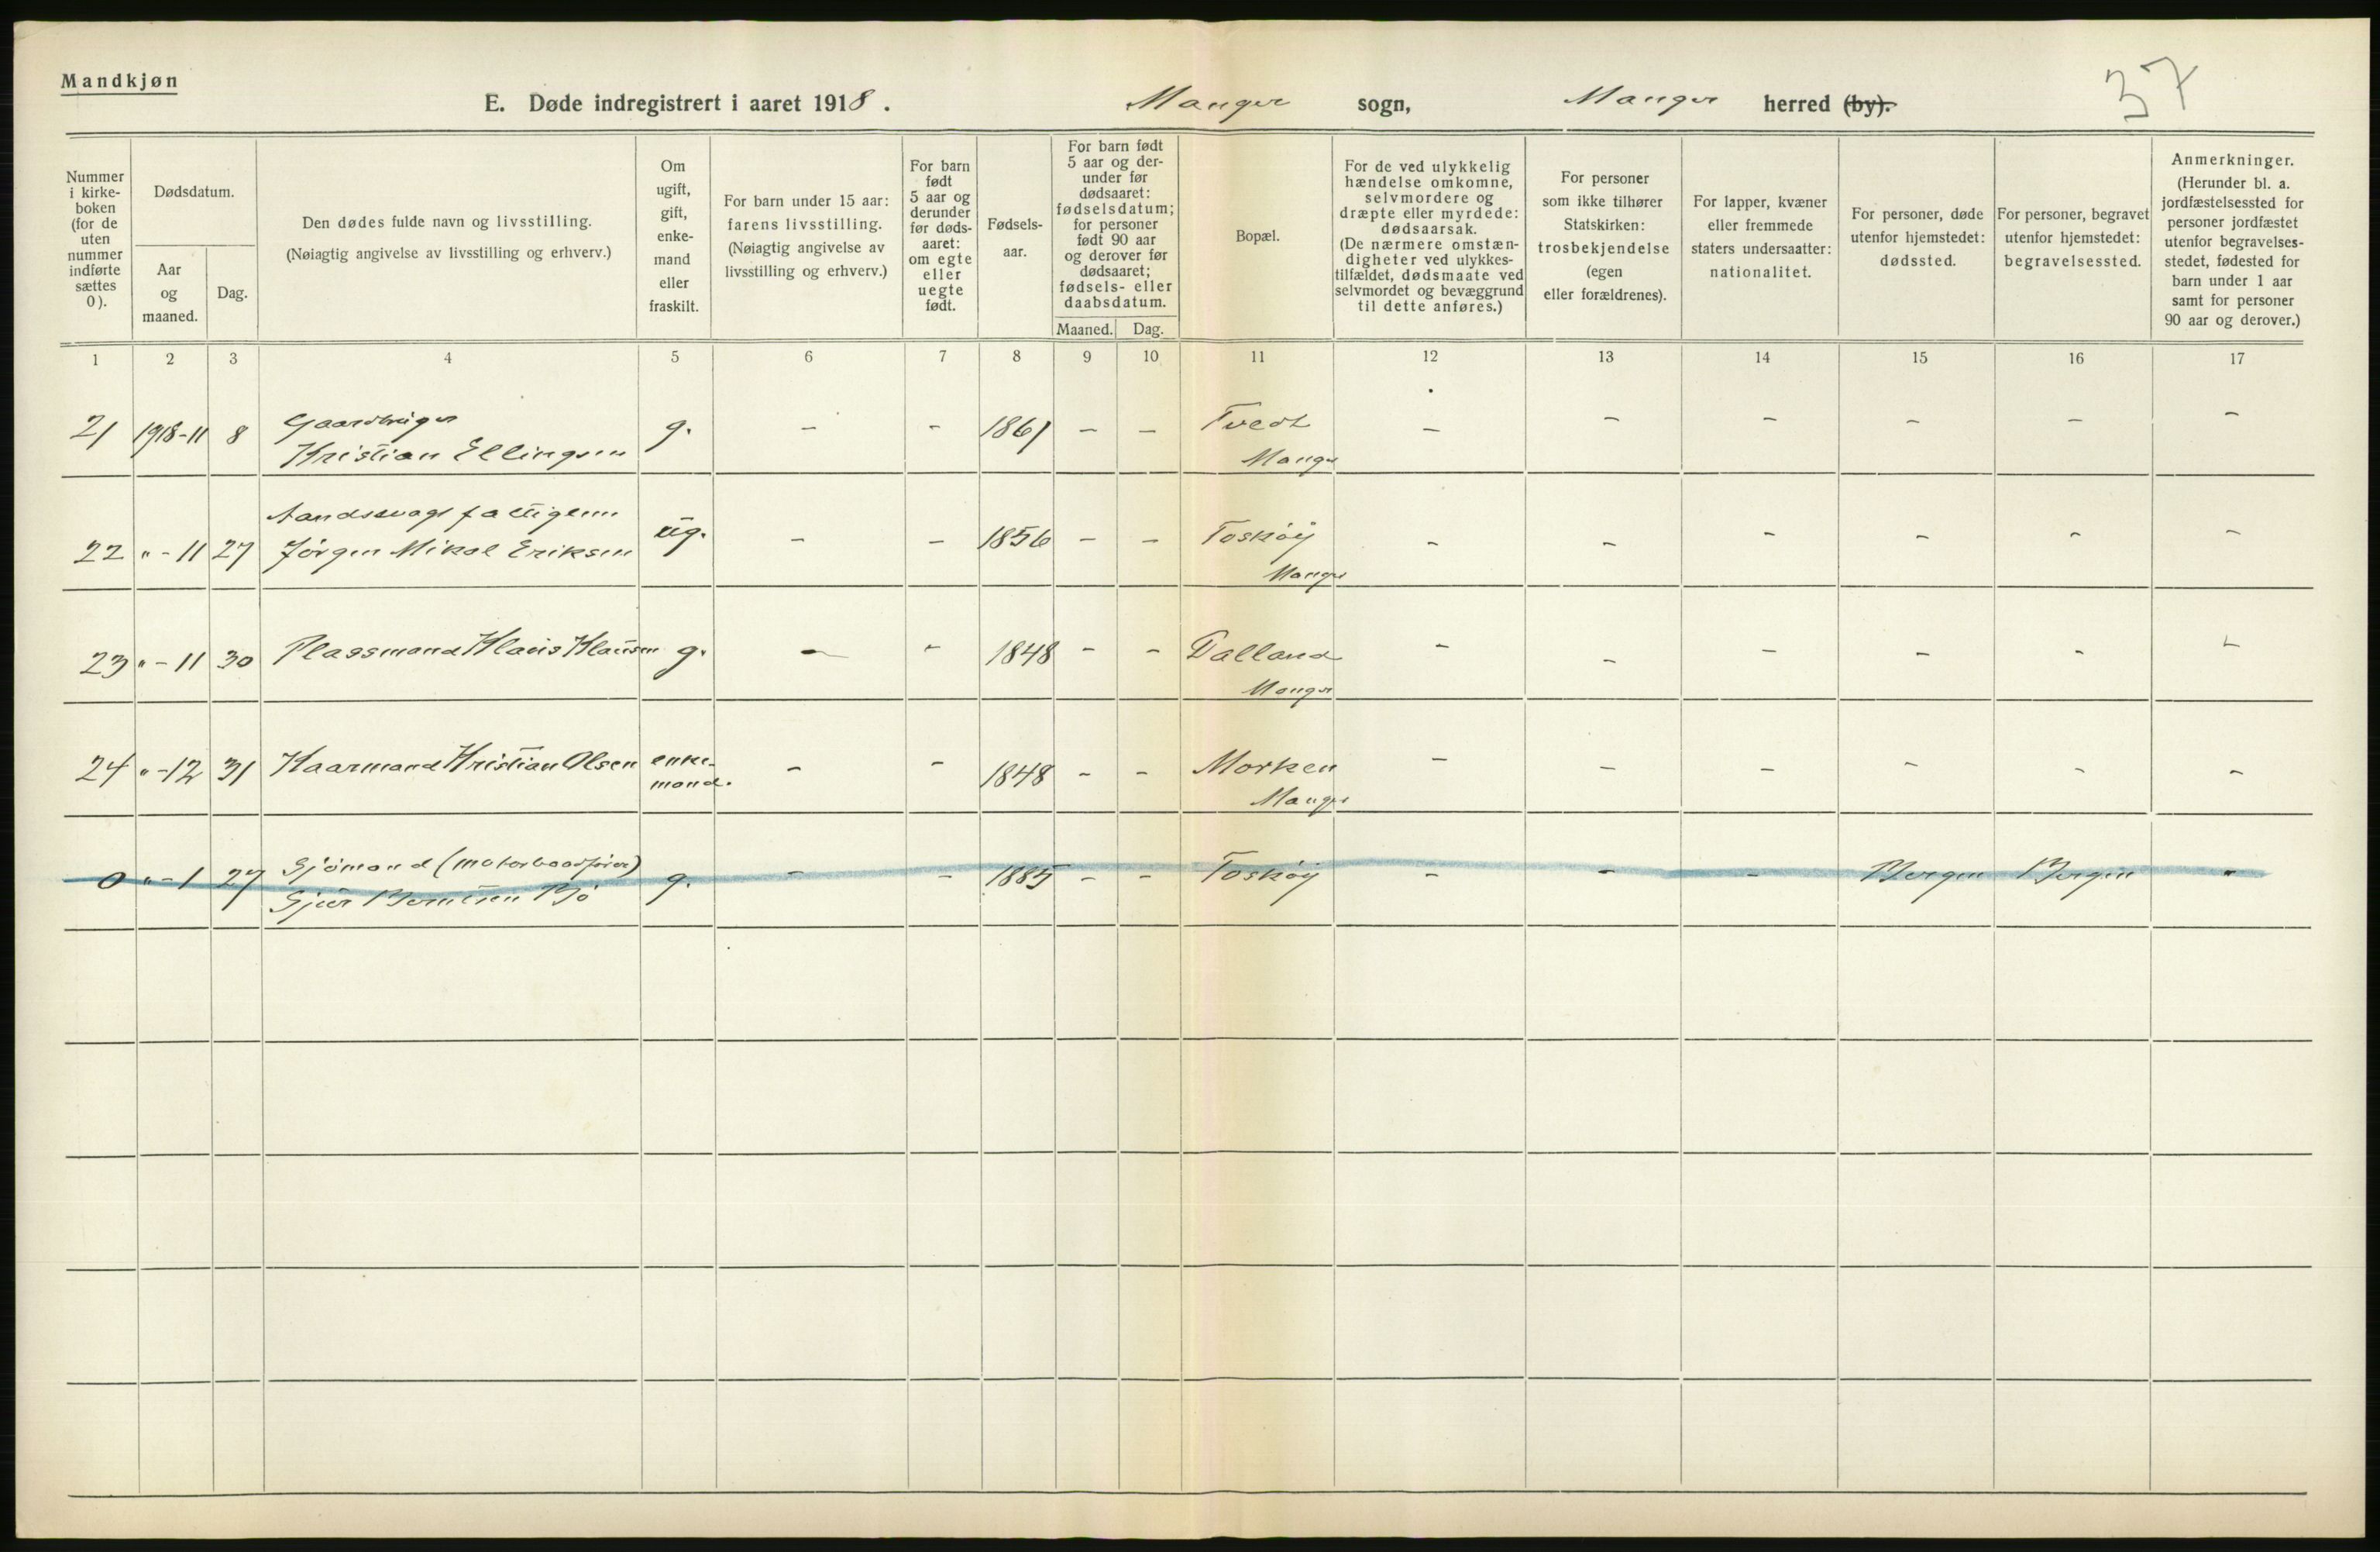 Mandkjøn
E. Døde indregistrert i aaret 1918. Manger sogn, Manger herred (by).
37
Nummer i kirke-boken (for de uten nummer indførte sættes 0).
Dødsdatum.
Aar og maaned.
Dag.
Den dødes fulde navn og livsstilling.
(Nøiagtig angivelse av livsstilling og erhverv.)
Om ugift, gift, enke-mand eller fraskilt.
For barn under 15 aar: farens livsstilling.
(Nøiagtig angivelse av livsstilling og erhverv.)
For barn født 5 aar og derunder før døds-aaret: om egte eller uegte født.
Fødsels-aar.
For barn født 5 aar og der-under før dødsaaret: fødselsdatum; for personer født 90 aar og derover før dødsaaret; fødsels- eller daabsdatum.
Maaned. Dag.
Bopæl.
For de ved ulykkelig hændelse omkomne, selvmordere og dræpte eller myrdede: dødsaarsak.
(De nærmere omstæn-digheter ved ulykkes-tilfældet, dødsmaate ved selvmordet og bevæggrund til dette anføres.)
For personer som ikke tilhører Statskirken: trosbekjendelse (egen eller forældrenes).
For lapper, kvæner eller fremmede staters undersaatter: nationalitet.
For personer, døde utenfor hjemstedet: dødssted.
For personer, begravet utenfor hjemstedet: begravelsessted.
Anmerkninger.
(Herunder bl. a. jordfæstelsessted for personer jordfæstet utenfor begravelses-stedet, fødested for barn under 1 aar samt for personer 90 aar og derover.)
1 2 3 4 5 6 7 8 9 10 11 12 13 14 15 16 17
Gaardbruger
21 1918-11 8 Kristian Ellingsen g. - - 1861 - - Tvedt - - - - - -
Manger
Aandssvag fattiglem
22 " - 11 27 Jörgen Mikal Eriksen ug. - - 1856 - - Toskøy - - - - - -
Manger
23 " - 11 30 Plassmand Klaus Klausen g. - - 1848 - - Dalland - - - - - -
Manger
24 " - 12 31 Kaarmand Kristian Olsen enke-mand. - - 1848 - - Morken - - - - - -
Manger
Sjömand (motorbaadförer)
0 " - 1 27 Sjur Berntsen Bö g. - - 1885 - - Toskøy - - - Bergen Bergen "